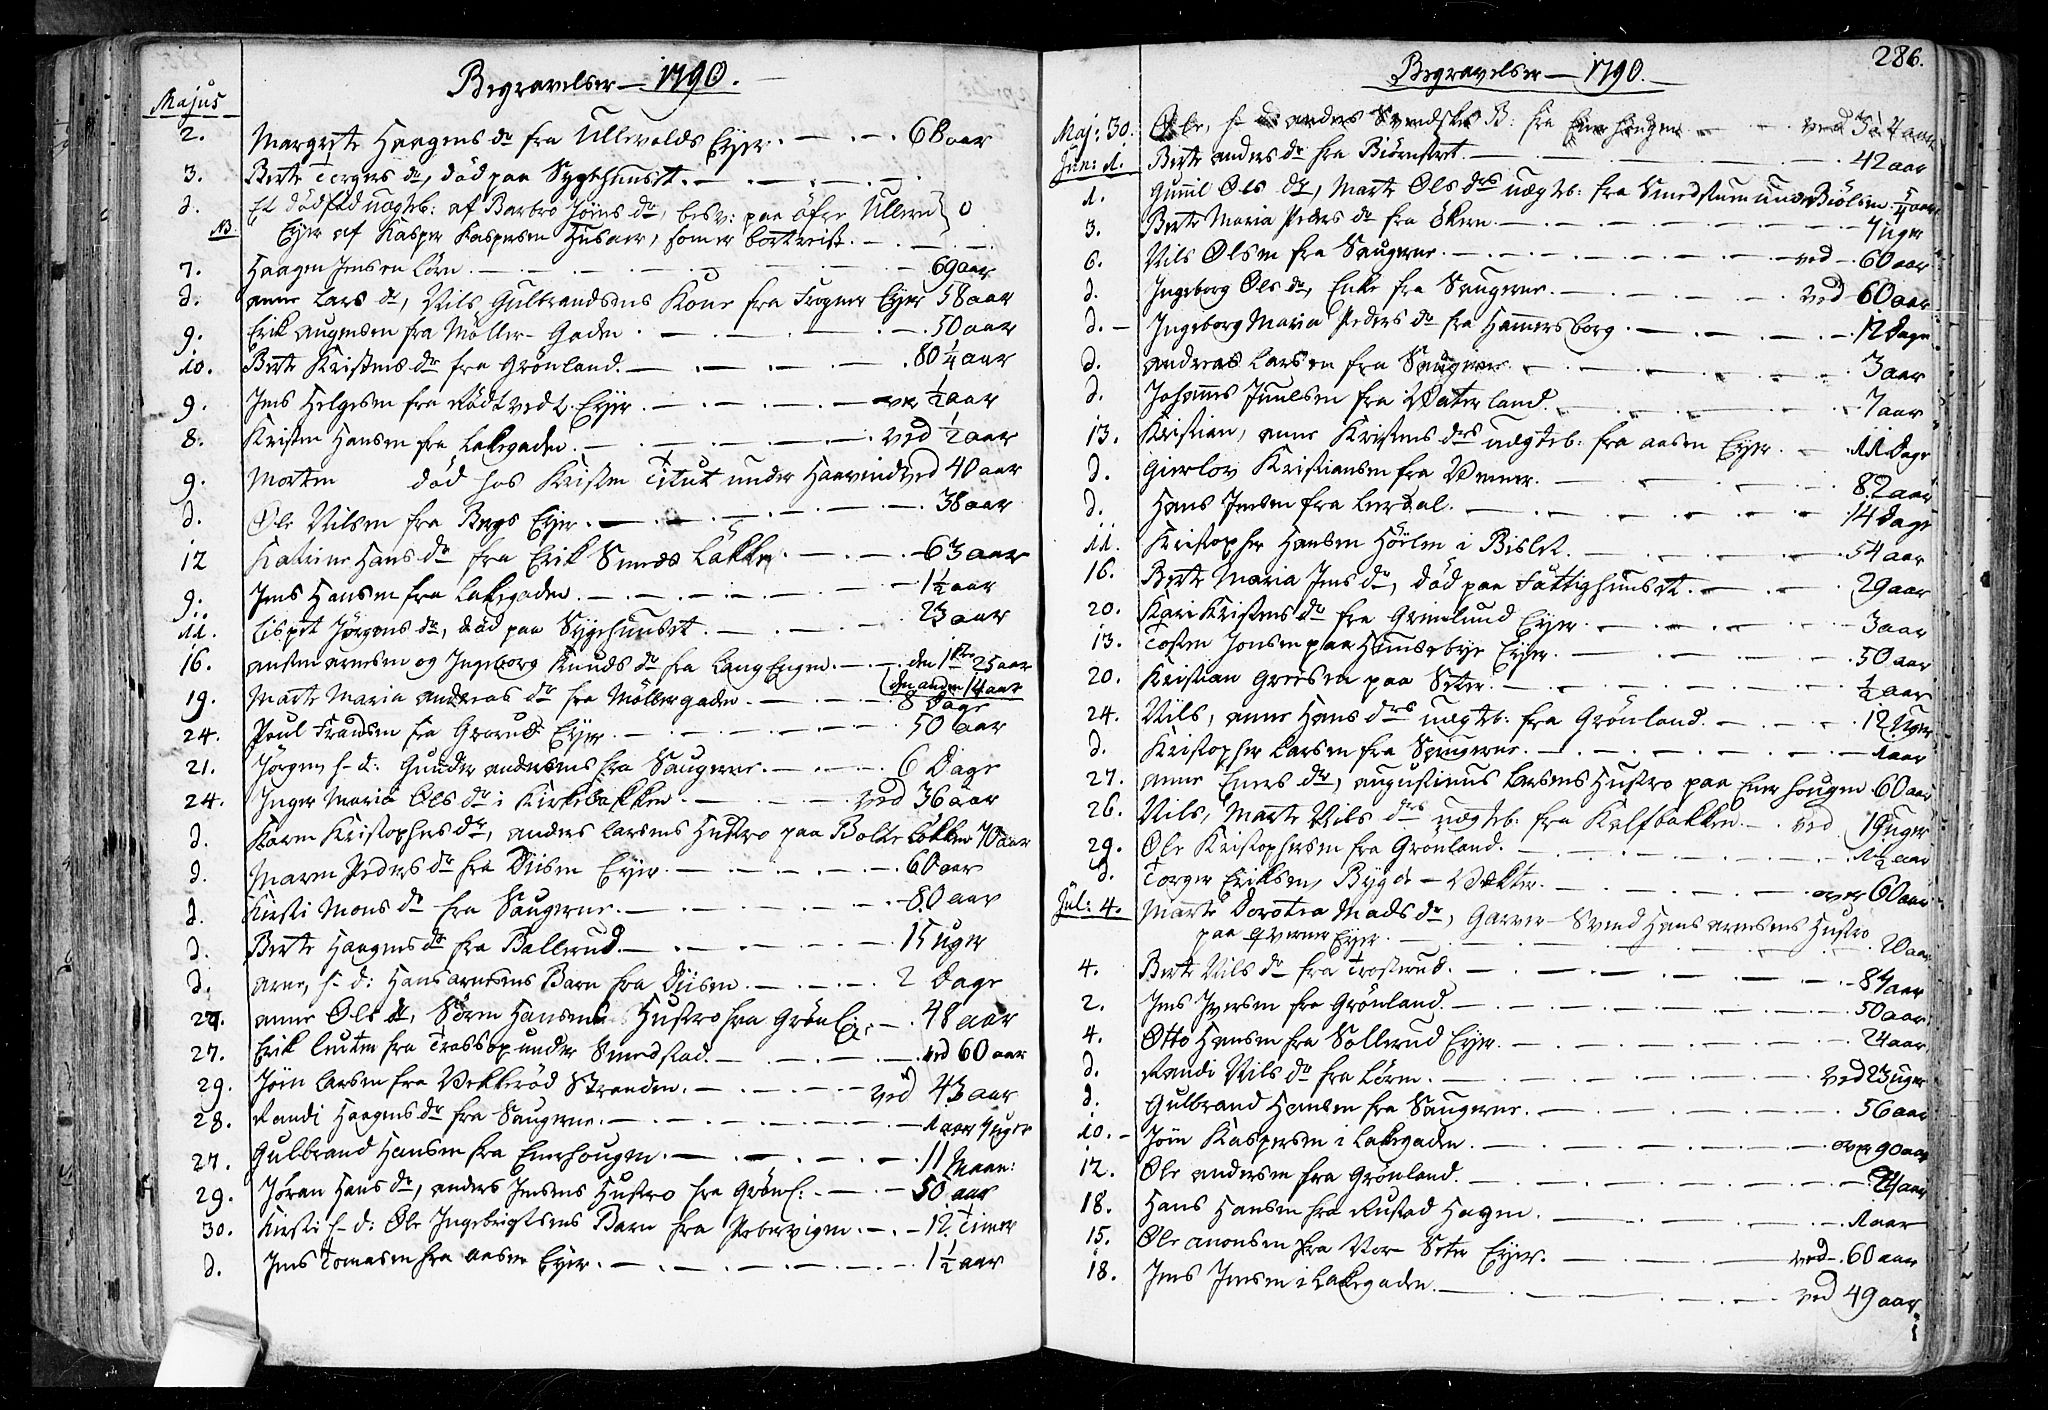 Begravelser — 1790.
Majus
2. Margrete Haagens dr fra Ullevolds Eyer. 68 aar
3. Berte Torgers dr, död paa Sygehuuset.
d. Et dödföd uægteb: af Barbro Joens dr, besv: paa öfre Ullern 0
NB. Eyer af Kasper Kaspersen Husaer, som er bortreist.
7. Haagen Jensen Lörn 69 aar
d. Anne Lars dr, Nils Gulbrandsens Kone fra Frogner Eyer 58 aar
9. Erik Augensen fra Möller-Gaden 50 aar
10. Berte Kristens dr fra Grönland. 80 1/4 aar
9. Jens Helgesen fra Rödtvedt Eyer. 1/2 aar
8. Kristen Hansen fra Lakegaden. ved 1/2 aar
9. Morten död hos Kristen Titut under Haavind ved 40 aar
d. Ole Nilsen fra Bergs Eyer. 38 aar
12 Katrine Hans dr fra Erik Smeds Lökke. 63 aar
9. Jens Hansen fra Lakegaden. 1 1/2 aar
11. Lispet Jörgens dr, död paa Sygehuuset. 23 aar
16. Austen Arnesen og Ingeborg Knuds dr fra Lang Engen. den 1ste 25 aar
den anden 14 aar
19. Marte Maria Andreas dr fra Möllergaden. 8 Dage
24. Poul Frandsen fra Grorud Eyer 50 aar
21. Jörgen h-d: Gunder Andersens fra Saugerne. 6 Dage
24. Inger Maria Ols dr i Kirkebakken. ved 36 aar
d. Karen Kristophers dr, Anders Larsens Hustro paa Bolte Lökken 70 aar
d. Maren Peders dr fra Diisen Eyer. 60 aar
d. Kirsti Mons dr fra Saugerne. 80 aar
d. Berte Haagens dr fra Ballerud. 15 uger
d. Arne, h-d: Hans Arnesens Barn fra Diisen. 2 Dage
27. Anne Ols dr, Sören Hansens Hustro fra Grönl: 48 aar
27. Erik Luten fra Trossop under Smedstad. ved 60 aar
29. Joen Larsen fra Vekkeröd Stranden. ved 43 aar
28. Randi Haagens dr fra Saugerne. 1 aar 4 uger
27. Gulbrand Hansen fra Enerhougen. 11 Maan:
29. Jöran Hans dr, Anders Jensens Hustro fra Grönl: 50 aar
30. Kirsti h-d: Ole Ingebrigtsens Barn fra Pebervigen. 12 Timer
d. Jens Tomasen fra Aasen Eyer. 1 1/2 aar
286.
Begravelser — 1790.
Maj: 30. Ole, h-d: Anders Svendskes B: fra Enerhougen ved
Jun: 1. Berte Anders dr fra Biörnsret. 42 aar
1. Gunil Ols dr, Marte Ols drs uægteb: fra Smedstuen under Biölsen. 5/4 aar
3. Berte Maria Peders dr fra Ökern. 4 uger
6. Nils Olsen fra Saugerne. ved 60 aar
d. Ingeborg Ols dr, Enke fra Saugerne. ved 60 aar
d. Ingeborg Maria Peders dr fra Hammersborg. 12 Dage
d. Andreas Larsen fra Saugerne. 3 aar
d. Johannes Juulsen fra Vaterland. 7 aar
13. Kristian, Anne Kristens drs uægteb: fra Aasen Eyer. 11 Dage
d. Gierlov Kristiansen fra 82 aar
d. Hans Jensen fra Lerdal. 14 Dage
11. Kristopher Hansen Höelen i Bislet. 54 aar
16. Berte Maria Jens dr, död paa Fattighuuset. 29 aar
20. Kari Kristens dr fra Grimelund Eyer. 3 aar
13. Tosten Jonsen paa Huusebye Eyer. 50 aar
20. Kristian Greesen paa Seter. 1/2 aar
24. Nils, Anne Hans drs uægteb: fra Grönland. 12 Uger
d. Kristopher Larsen fra Saugerne. 1 aar
27. Anne Eners dr, Augustinus Larsens Hustro paa Enerhougen 60 aar
26. Nils, Marte Nils drs uægteb: fra Kalfbakken. ved 19 uger
29. Ole Kristophersen fra Grönland. 1 1/2 aar
d. Torger Eriksen, Bygde-Vekter. over 60 aar
Jul: 4. Marte Dorotea Mads dr, Garver-Svend Hans Arnesens Hustro
paa Qverner Eyer. 20 aar
4. Berte Nils dr fra Trosterud. 84 aar
2. Jens Iversen fra Grönland. 50 aar
4. Otto Hansen fra Sollerud Eyer. 24 aar
d. Randi Nils dr fra Lörn. ved 23 uger
d. Gulbrand Hansen fra Saugerne. 56 aar
10. Joen Kaspersen i Lakegaden. over 90 aar
12. Ole Andersen fra Grönland. 24 aar
18. Hans Hansen fra Rustad Hagen. 1 aar
15. Ole Amonsen fra Vor-Seter Eyer. ved 60 aar
18. Jens Jensen i Lakegaden. ved 49 aar